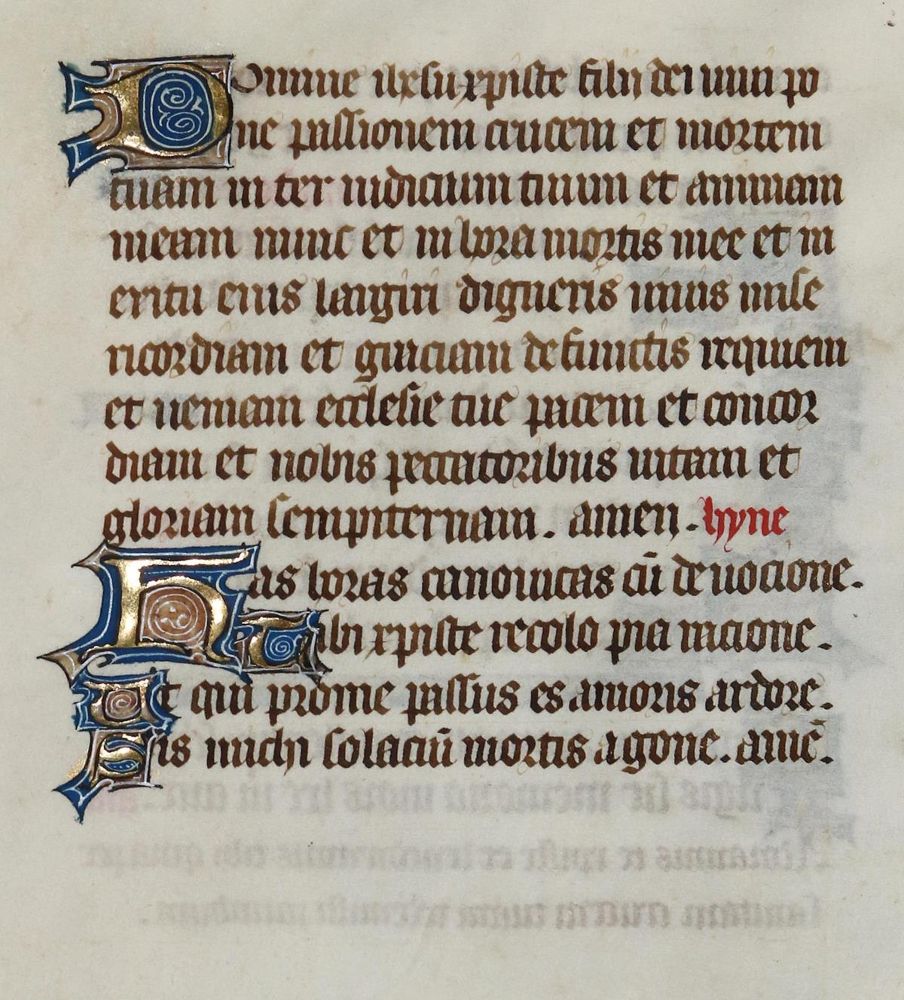 Domine ihesu xpiste filii dei uiui po
ne passionem crucem et mortem
tuam in ter iudicium tuum et animam
meam nunc et in hora mortis mee et in
eritu eius largiri digneris uiuis mise
ricordiam et graciam defunctis requiem
et ueniam ecclesie tue pacem et concor
diam et nobis peccatoribus uitam et
gloriam sempiternam. amen. hyne
Has horas canonicas cū deuocione.
Tibi xpiste recolo pia racione.
Ut qui prome passus es amoris ardore.
Sis michi solaciū mortis agone. amē.